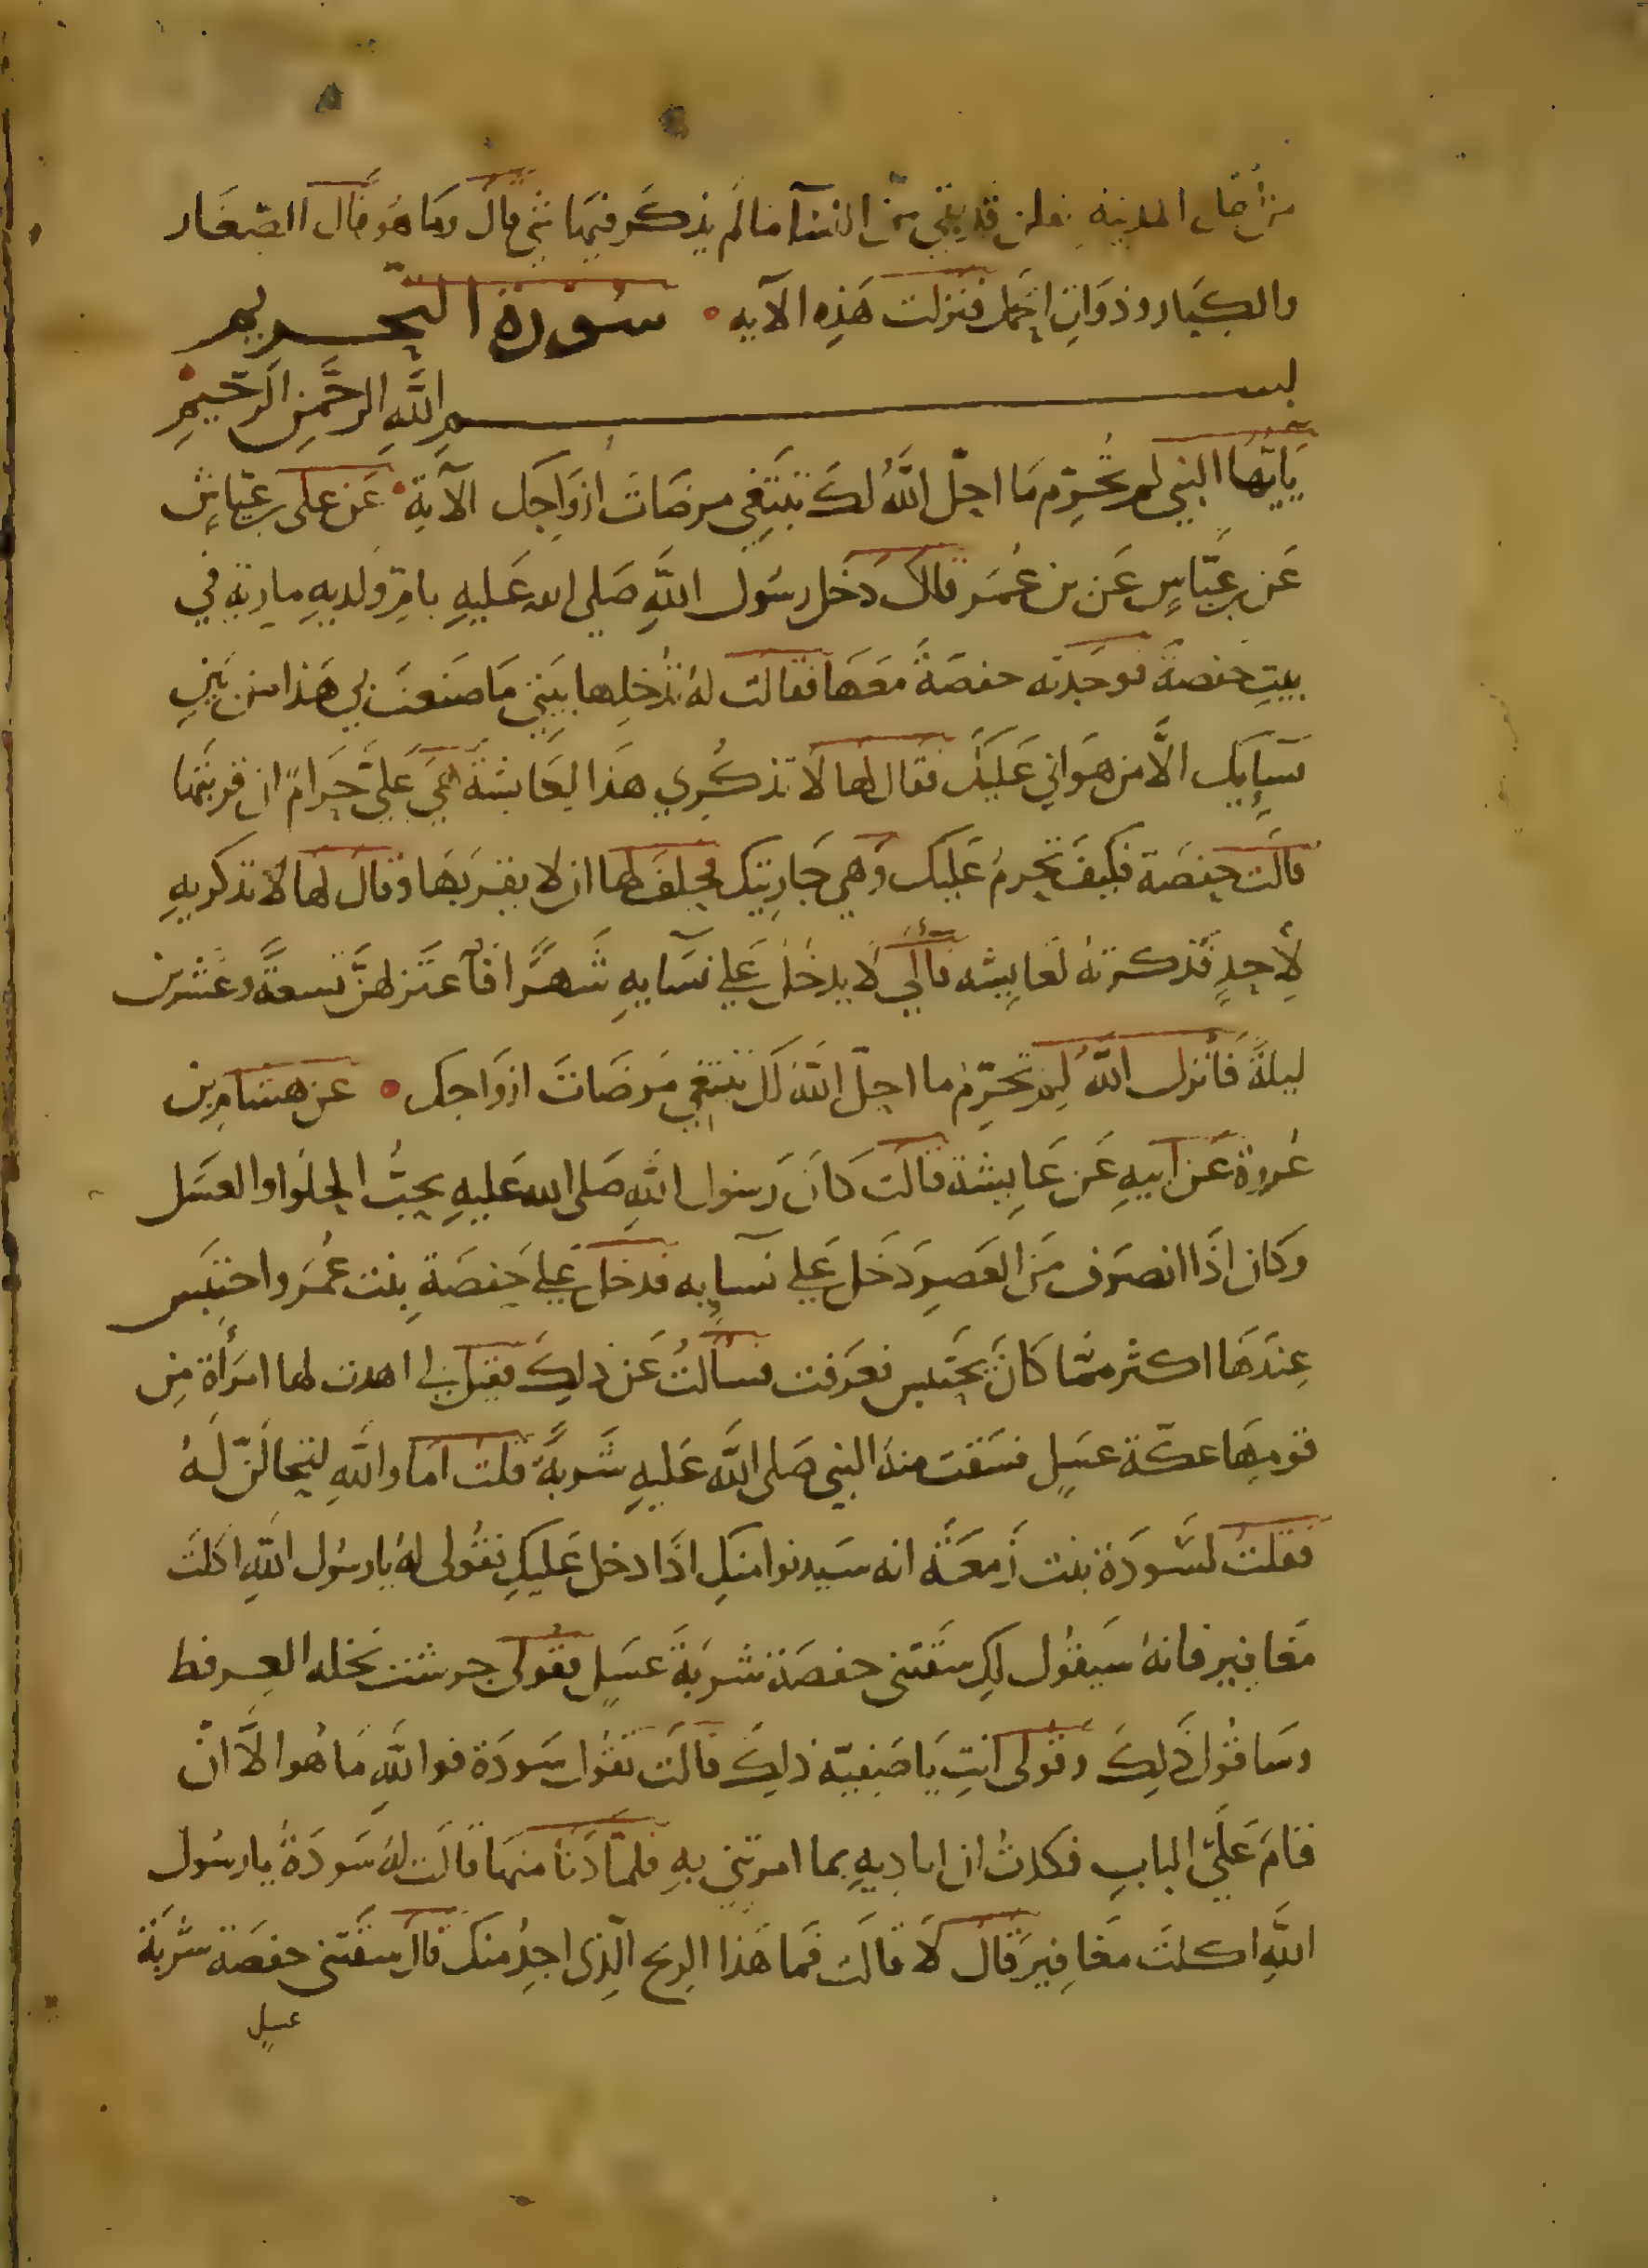 من نساء المدينة فلن قد بقي من النسآ ما لم يذكر فيها شي قال وما هو قال الصغار
والكبار وذوات الحمل فنزلت هذه الآيه سورة التحريم
بسم اللَّهِ الرحَّمنِ الرحيمِ
يَايّها النبي لم تُحَرِّم مَا احلّ اللَّهُ لكَ تبتَغِي مرضَاتَ ازوَاجِكَ الآية عَن على بن عبّاسٍ
عَن بن عبَّاسٍ عَن بن عُمَر قال دَخل رسُول اللَّهِ صَلى الله عَليهِ بامِّ ولدِهِ مارية في
بيتِ حفصة فوجَدته حفصَةُ معَهَا فقالت لهُ تُدخِلها بَيتي مَا صنعتَ بي هَذا من بَينِ
نسَآيِك الَّا من هَوَاني عَليكَ فقال لها لَا تذكُرِي هَذا لِعَايشةَ هي عَليَّ حَرامٌ ان قربتُها
قالت حفصَة فكيفَ تحرمُ عَليك وَهي جَاريتك فحلفَ لها ان لا يقربَهَا وقال لها لا تذكريهِ
لِأَحدٍ فَذكرتهُ لعَايِشه فالى لَا يدخُل عَلى نسَآيهِ شَهرًا فآعتَزلهُنَّ تسعةً وعشرين
ليلةً فأنزل اللَّهُ لِم تحَرّمُ ما احلّ اللَّهُ لكَ تبتغِي مَرضَاتَ ازوَاجك عن هشام بن
عُروة عَن ابيهِ عَن عَايِشة قالت كَانَ رَسُول اللَّهِ صَلى الله عَليهِ يحبُّ الحلوَا والعسَل
وَكان اذَا انصرَف مَن العَصرِ دَخَل عَلى نسآيِه فدخلَ عَلى حَفصَةِ بنت عُمَر واحتبَس
عِندَهَا اكثر ممَّا كَانَ يحتَبس فعرَفت فسَألتُ عَن ذلِكَ فقيل لي اهدت لها امرَأة مِن
قومِهَا عكّة عسَلٍ فسَقت منهُ النبي صَلى اللَّه عَليهِ شَربَةً قلتُ امَا واللَّهِ لنحتَالنّ لَهُ
فقلتُ لسَّودَة بنت زَمعَة انه سَيدنوا منكِ اذَا دخل عَليكِ فقُولى لهُ يا رسُول اللَّهِ اكلتَ
مَغافِير فانهُ سَيقُول لكِ سقَتنى حفصَة شربَةَ عسَلٍ فقُولى جرست نحله العرفط
وسَاقُول ذَلِكَ وقولى انتِ يَا صَفيّة ذلِكَ قالت تقُول سَودَة فواللَّهِ مَا هُو الَّا انْ
قامَ عَليّ البابِ فكدتُ ان اباديهِ بما امرتني بهِ فلمّا دَنا منهَا قالَت لهُ سَودَةُ يا رسُول
اللَّهِ اكلتَ مغَافِيرَ قال لَا قالَت فمَا هَذا الرِيح الّذِى اجِدُ منكَ قال سقَتنى حفصَة شَربَة
عسلٍ